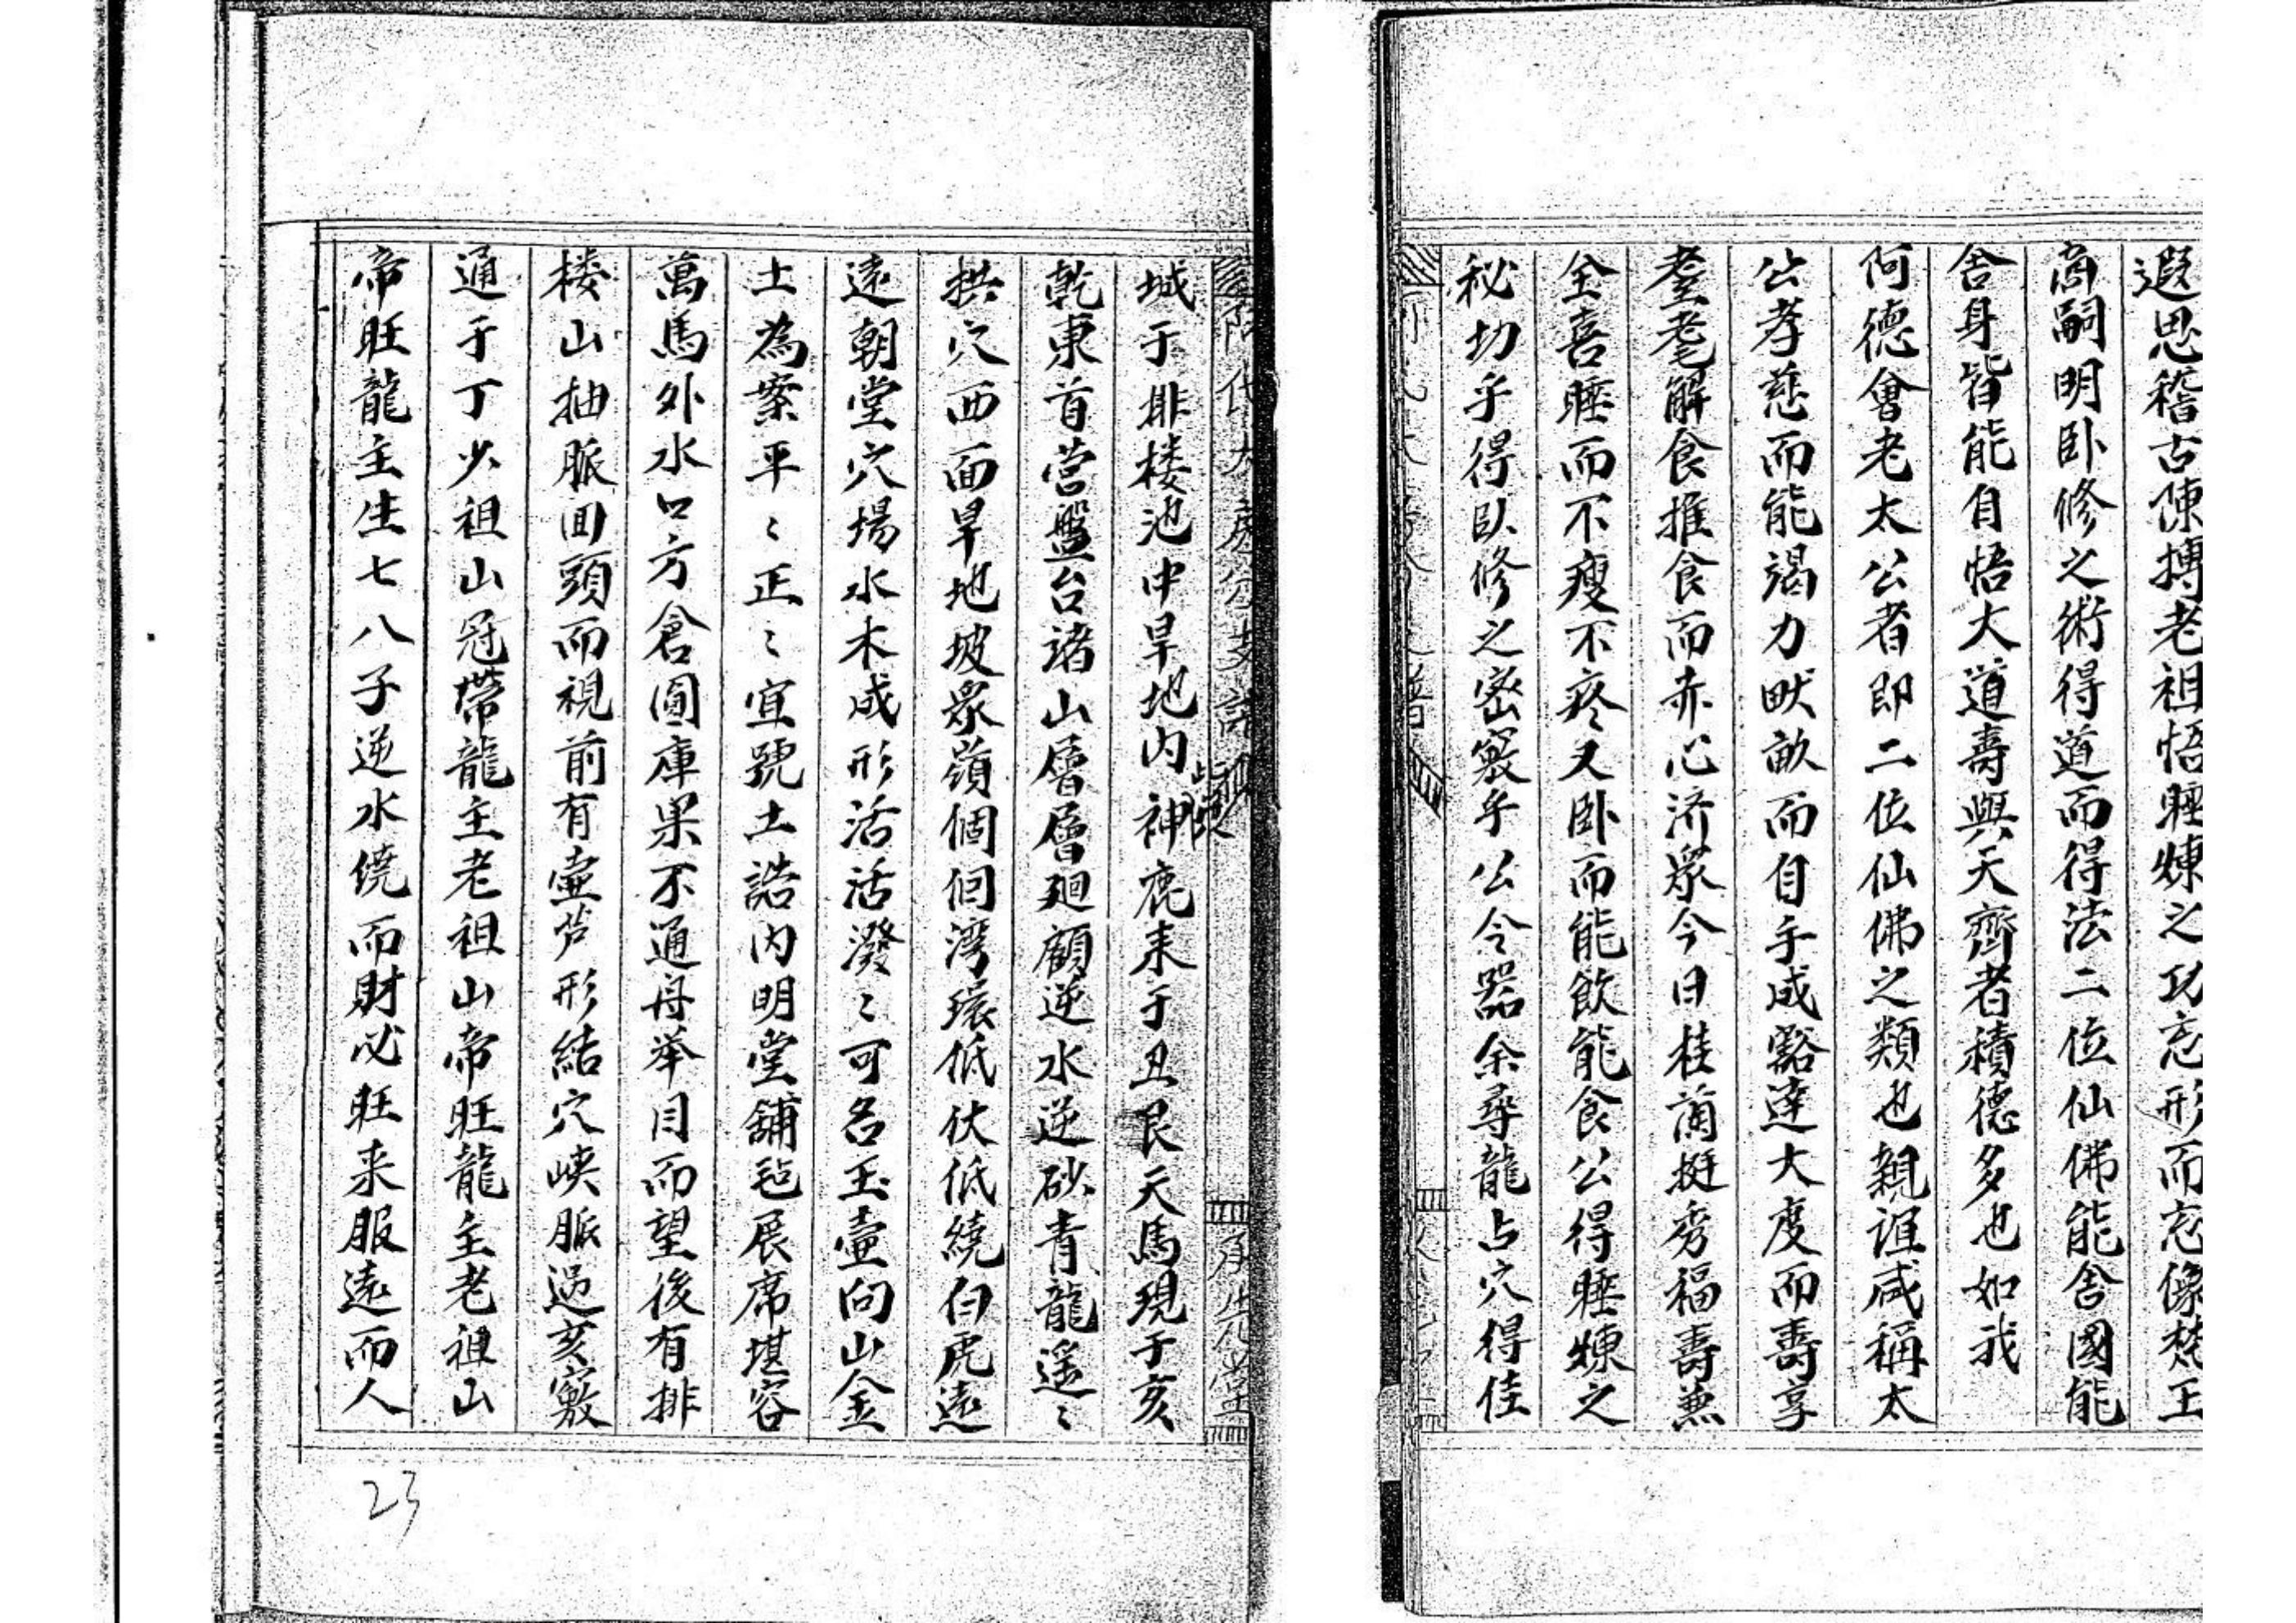 遐思稽古陳摶老祖悟睡煉之功忘形而忘像梵王
啇嗣明卧修之術得道而得法二位仙佛能舍國能
舍身皆能自悟大道壽與天齊者積德多也如我
阿德會老太公者即二位仙佛之類也親誼咸稱太
公孝慈而能竭力畎畝而自手成豁達大度而壽享
耋耄解食推食而赤心济衆今日桂蘭挺秀福壽兼
全喜睡而不瘦不疼又卧而能飲能食公得睡煉之
秘切乎得臥修之密窽乎公令器余尋龍占穴得佳
城于排楼池中旱地内神鹿来于丑艮天馬現于亥
乾東首营盤台諸山層層廻顧逆水逆砂青龍遥〻
拱穴西面旱地坡衆嶺個個湾環低伏低繞白虎遠
遠朝堂穴場水木成形活活潑〻可名玉壺向山金
土為案平〻正〻宜號土誥内明堂舖毡展席堪容
萬馬外水口方倉圓庫果不通舟举目而望後有排
楼山抽脈囬頭而視前有壷芦形結穴峡脈過亥竅
通于丁少祖山冠带龍主老祖山帝旺龍主老祖山
帝旺龍主生七八子逆水绕而財必旺来服遠而人
承先堂
23